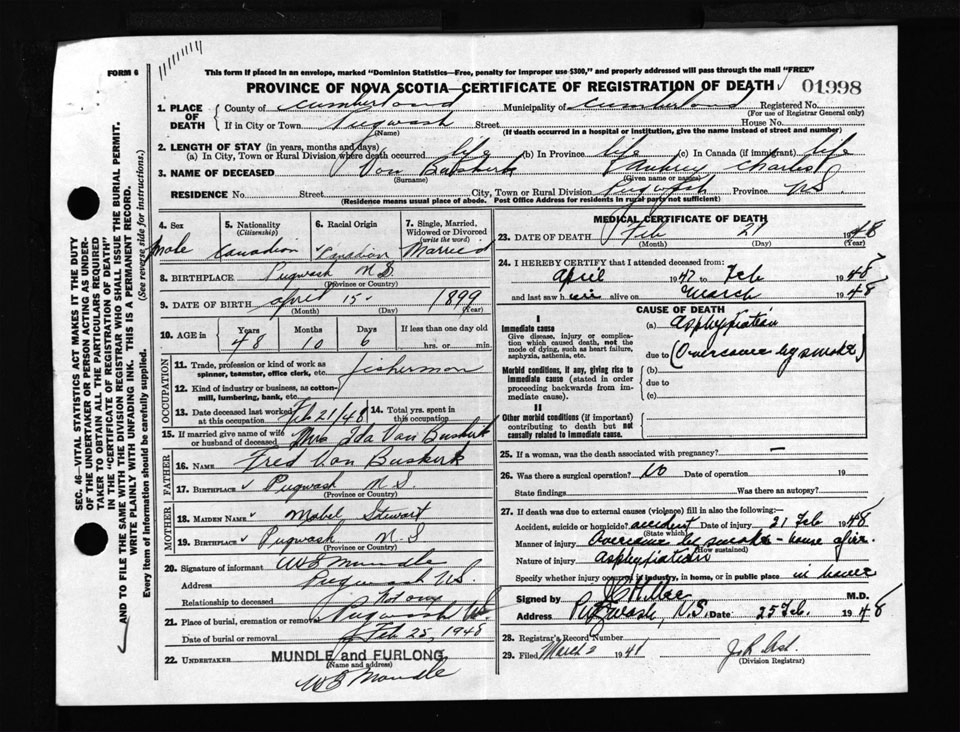 FORM 6
This form if placed in an envelope, marked "Dominion Statistics—Free, penalty for improper use $300," and properly addressed will pass through the mail "FREE"
PROVINCE OF NOVA SCOTIA—CERTIFICATE OF REGISTRATION OF DEATH 01998
1. PLACE OF DEATH County of Cumberland Municipality of Cumberland Registered No.
(For use of Registrar General only)
If in City or Town Pugwash Street House No.
(Name) (If death occurred in a hospital or institution, give the name instead of street and number)
2. LENGTH OF STAY (in years, months and days)
(a) In City, Town or Rural Division where death occurred life (b) In Province life (c) In Canada (if immigrant) life
3. NAME OF DECEASED Van Buskirk Aubrey Charles
(Surname) (Given name or names)
RESIDENCE No. Street City, Town or Rural Division Pugwash Province N.S.
(Residence means usual place of abode. Post Office Address for residents in rural parts not sufficient)
4. Sex Male
5. Nationality (Citizenship) Canadian
6. Racial Origin Canadian
7. Single, Married, Widowed or Divorced (write the word) Married
8. BIRTHPLACE Pugwash N.S.
(Province or Country)
9. DATE OF BIRTH April 15 1899
(Month) (Day) (Year)
10. AGE in Years Months Days If less than one day old
48 10 6 hrs. or min.
OCCUPATION
11. Trade, profession or kind of work as spinner, teamster, office clerk, etc. fisherman
12. Kind of industry or business, as cotton-mill, lumbering, bank, etc.
13. Date deceased last worked at this occupation Feb 21/48
14. Total yrs. spent in this occupation
15. If married give name of wife or husband of deceased Mrs Ida Van Buskirk
FATHER
16. NAME Fred Van Buskirk
17. BIRTHPLACE Pugwash N.S.
(Province or Country)
MOTHER
18. MAIDEN NAME Mabel Stewart
19. BIRTHPLACE Pugwash N.S
(Province or Country)
20. Signature of informant W S Mundle
Address Pugwash N.S.
Relationship to deceased Not any
21. Place of burial, cremation or removal Pugwash N.S.
Date of burial or removal Feb 25, 1948
22. UNDERTAKER MUNDLE and FURLONG
(Name and address)
W S Mundle
MEDICAL CERTIFICATE OF DEATH
23. DATE OF DEATH Feb 21 1948
(Month) (Day) (Year)
24. I HEREBY CERTIFY that I attended deceased from:
April 1947 to Feb 1948
and last saw h alive on March 1948
CAUSE OF DEATH
I
Immediate cause
Give disease, injury or complication which caused death, not the mode of dying, such as heart failure, asphyxia, asthenia, etc.
(a) Asphyxiation
due to (Overcome by smoke)
Morbid conditions, if any, giving rise to immediate cause (stated in order proceeding backwards from immediate cause).
(b)
due to
(c)
II
Other morbid conditions (if important) contributing to death but not causally related to immediate cause.
25. If a woman, was the death associated with pregnancy? —
26. Was there a surgical operation? No Date of operation 19
State findings Was there an autopsy?
27. If death was due to external causes (violence) fill in also the following:—
Accident, suicide or homicide? accident Date of injury 21 Feb 1948
(State which)
Manner of injury Overcome by smoke - house afire.
(How sustained)
Nature of injury Asphyxiation
Specify whether injury occured in industry, in home, or in public place in house
Signed by M.D.
Address Pugwash, N.S. Date: 25 Feb. 1948
28. Registrar's Record Number
29. Filed March 2 19
(Division Registrar)
SEC. 46—VITAL STATISTICS ACT MAKES IT THE DUTY OF THE UNDERTAKER OR PERSON ACTING AS UNDERTAKER TO OBTAIN ALL THE PARTICULARS REQUIRED IN THE "CERTIFICATE OF REGISTRATION OF DEATH"
AND TO FILE THE SAME WITH THE DIVISION REGISTRAR WHO SHALL ISSUE THE BURIAL PERMIT.
WRITE PLAINLY WITH UNFADING INK. THIS IS A PERMANENT RECORD.
Every item of information should be carefully supplied. (See reverse side for instructions.)